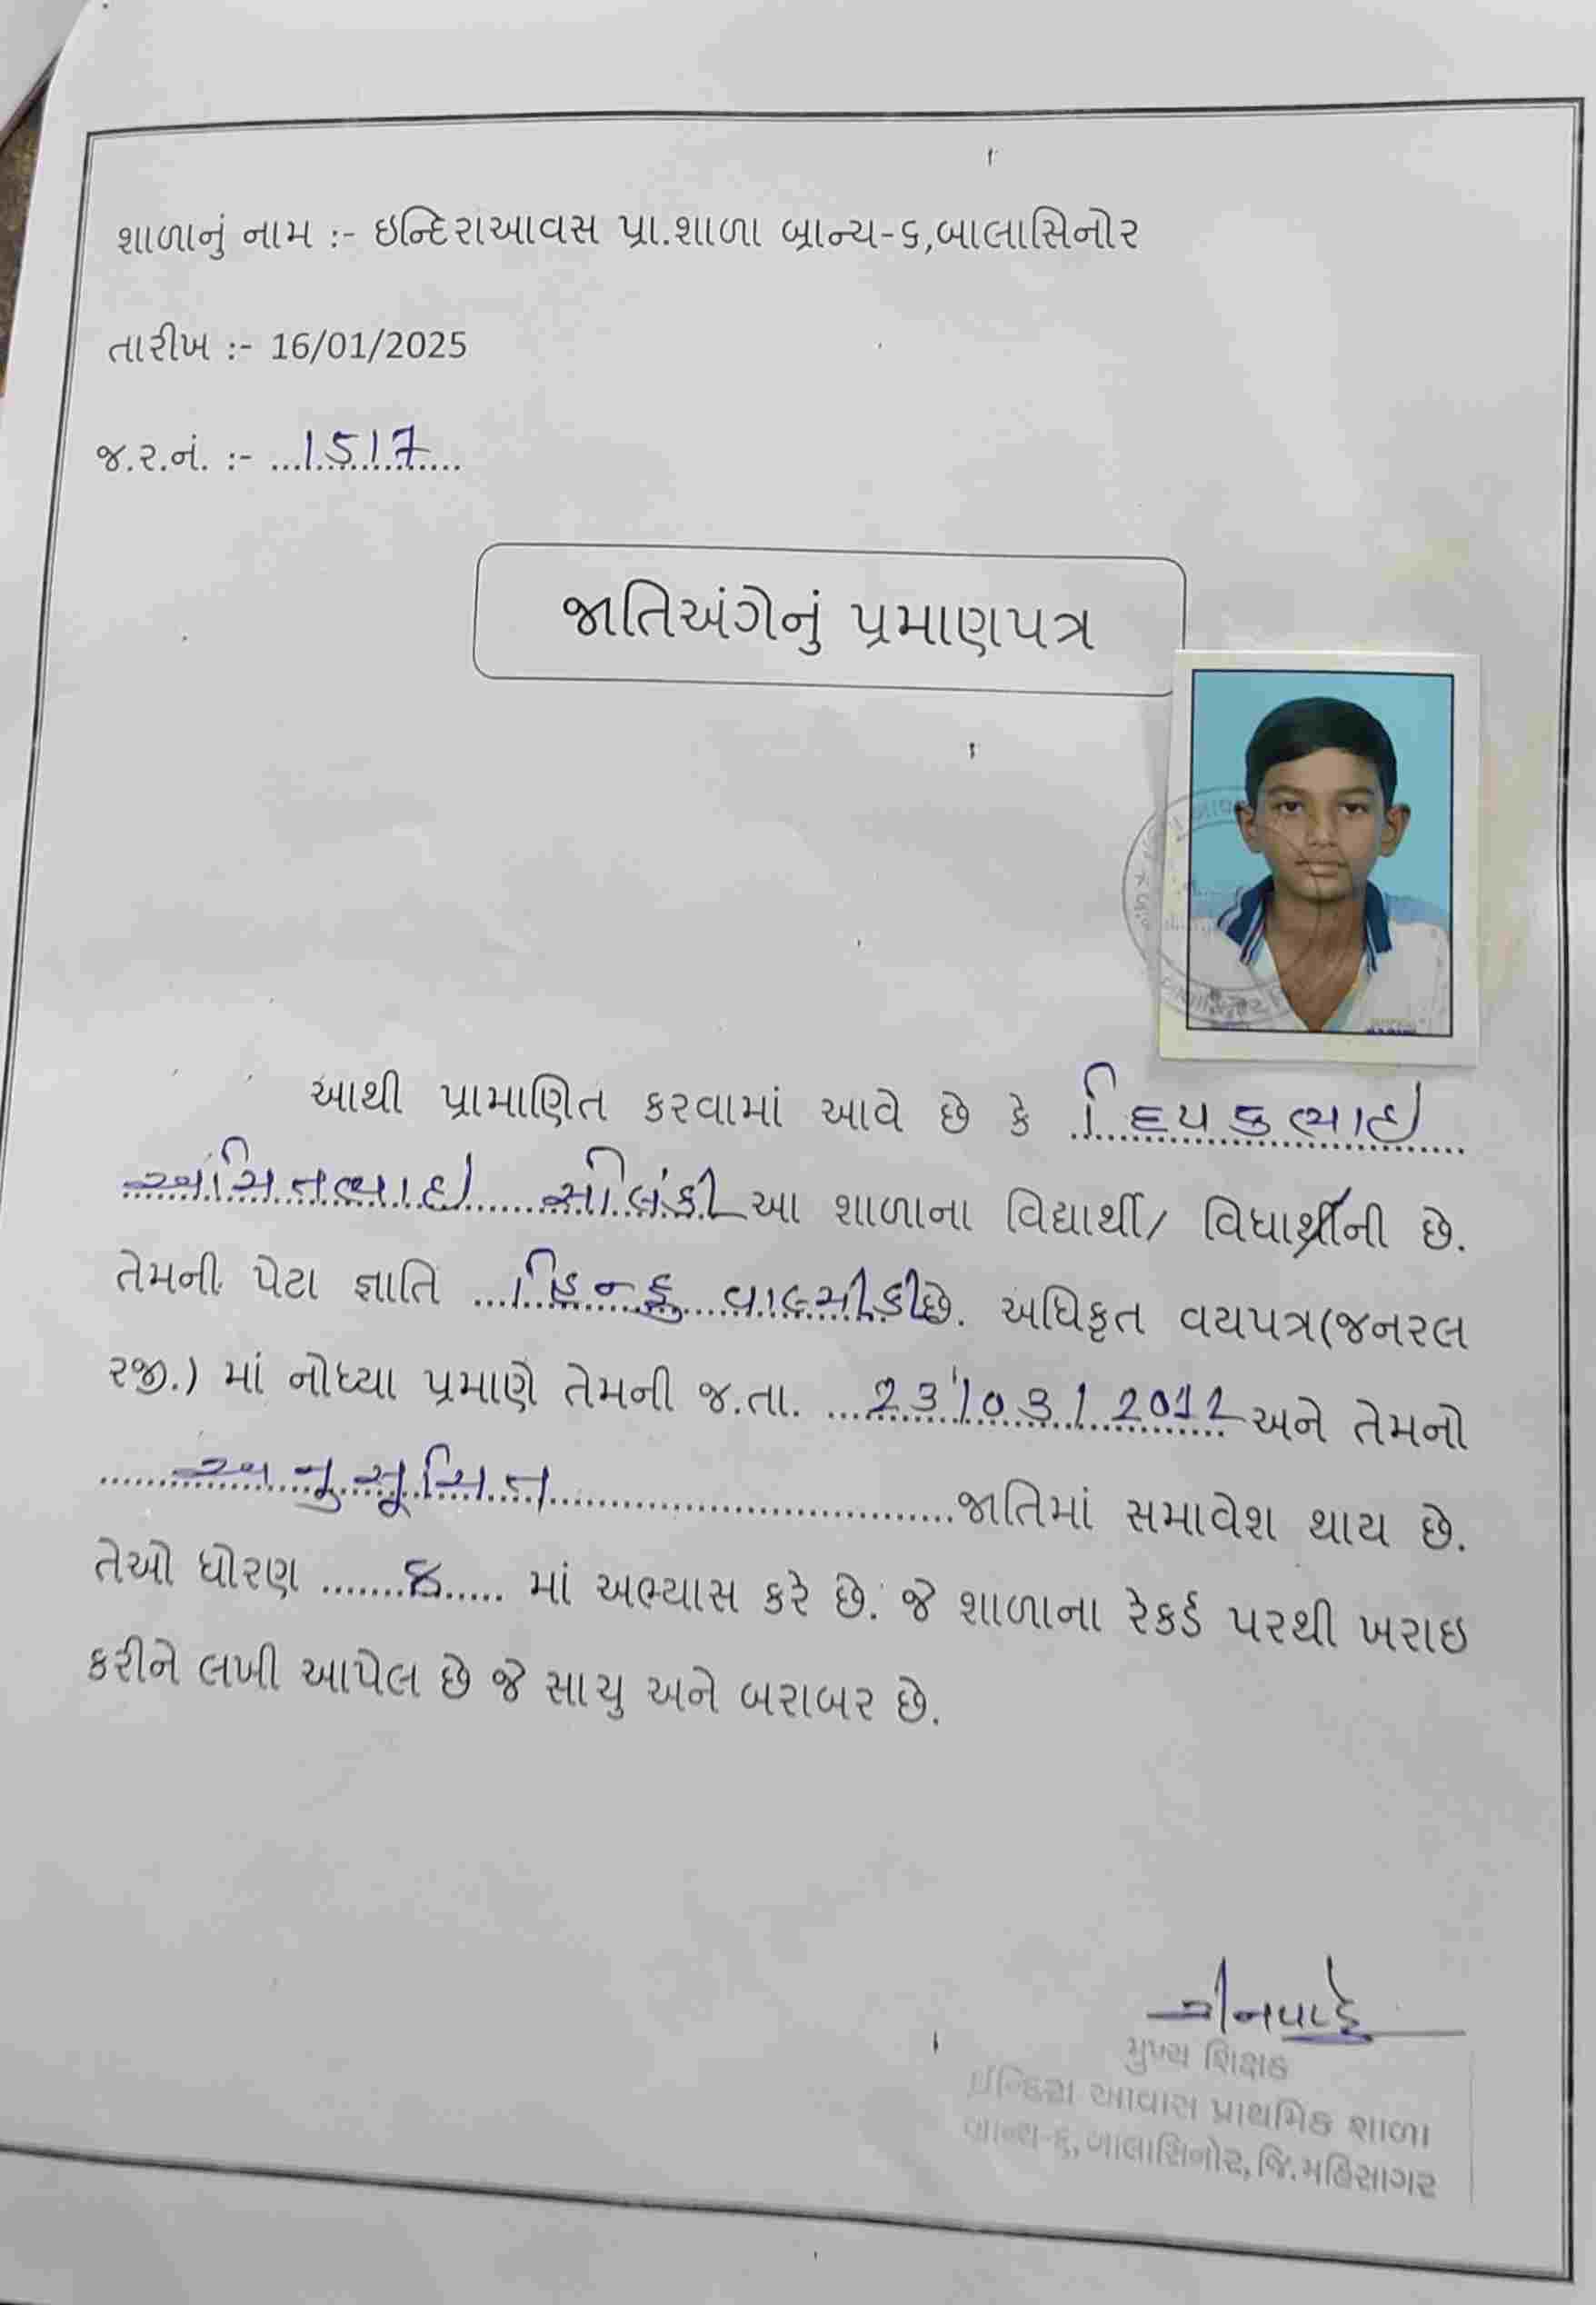 શાળાનું નામ :- ઇન્દિરાઆવસ પ્રા.શાળા બ્રાન્ચ-૬,બાલાસિનોર
તારીખ :- 16/01/2025
જ.ર.નં. :- ...1517...
જાતિઅંગેનું પ્રમાણપત્ર
આથી પ્રામાણિત કરવામાં આવે છે કે દિપકભાઇ
સોલંકી આ શાળાના વિદ્યાર્થી/ વિધાર્થીની છે.
તેમની પેટા જ્ઞાતિ હિન્દુ વાલ્મીકી છે. અધિકૃત વયપત્ર(જનરલ
રજી.) માં નોધ્યા પ્રમાણે તેમની જ.તા. 23/03/2012 અને તેમનો
અનુસૂચિત જાતિમાં સમાવેશ થાય છે.
તેઓ ધોરણ માં અભ્યાસ કરે છે. જે શાળાના રેકર્ડ પરથી ખરાઇ
કરીને લખી આપેલ છે જે સાચુ અને બરાબર છે.
મુખ્ય શિક્ષક
ઈન્દિરા આવાસ પ્રાથમિક શાળા
બ્રાન્ચ-૬, બાલાસિનોર, જિ.મહિસાગર